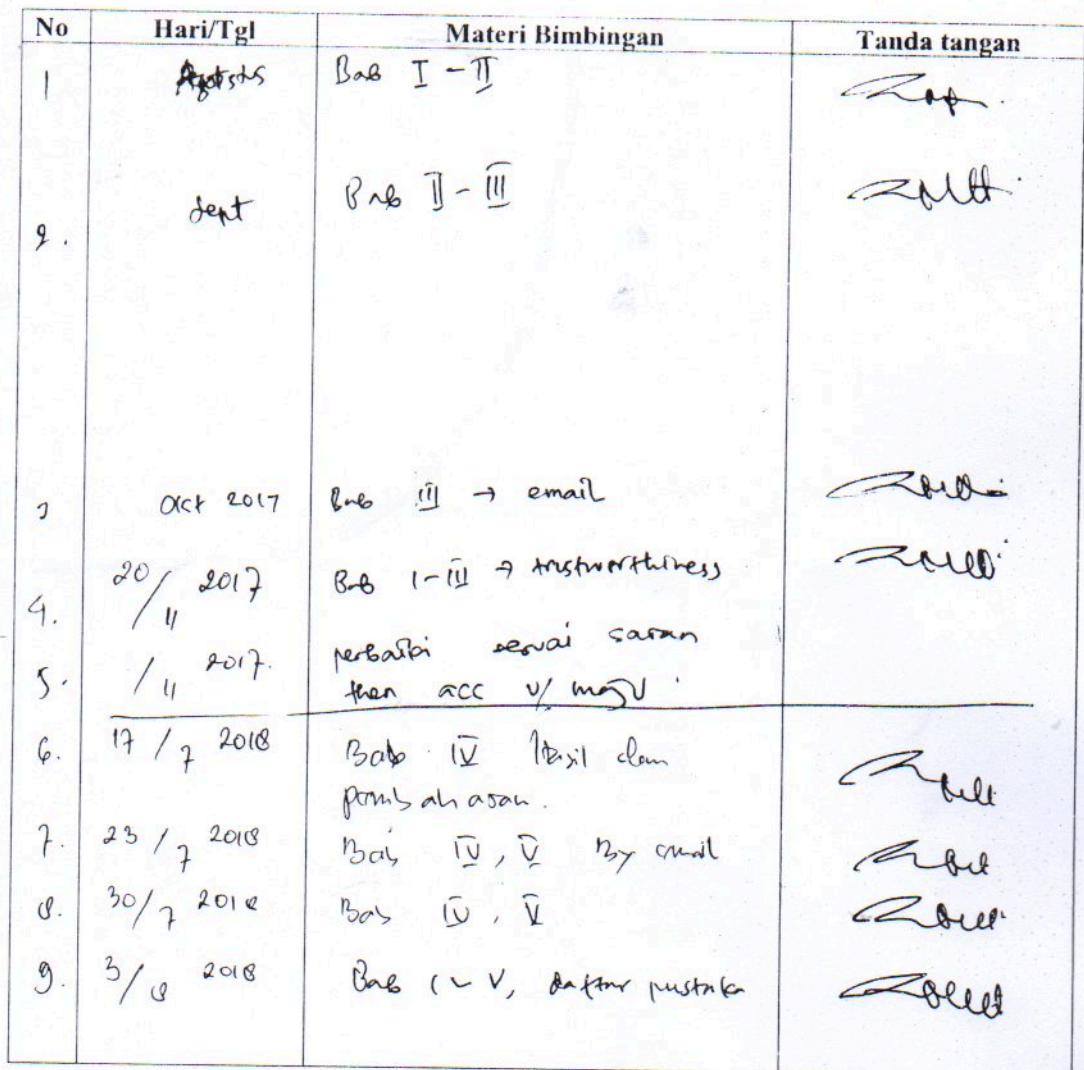 No Hari/Tgl Materi Bimbingan Tanda tangan
1 Agustus Bab I - II
2. Sept Bab II - III
3 Oct 2017 Bab III → email
4. 20/11 2017 Bab I-III → trustworthiness
5. /11 2017. perbaiki sesuai saran
then acc u/ maju
6. 17/7 2018 Bab IV Hasil dan
pembahasan.
7. 23/7 2018 Bab IV, V By email
8. 30/7 2018 Bab IV, V
9. 3/8 2018 Bab V, daftar pustaka